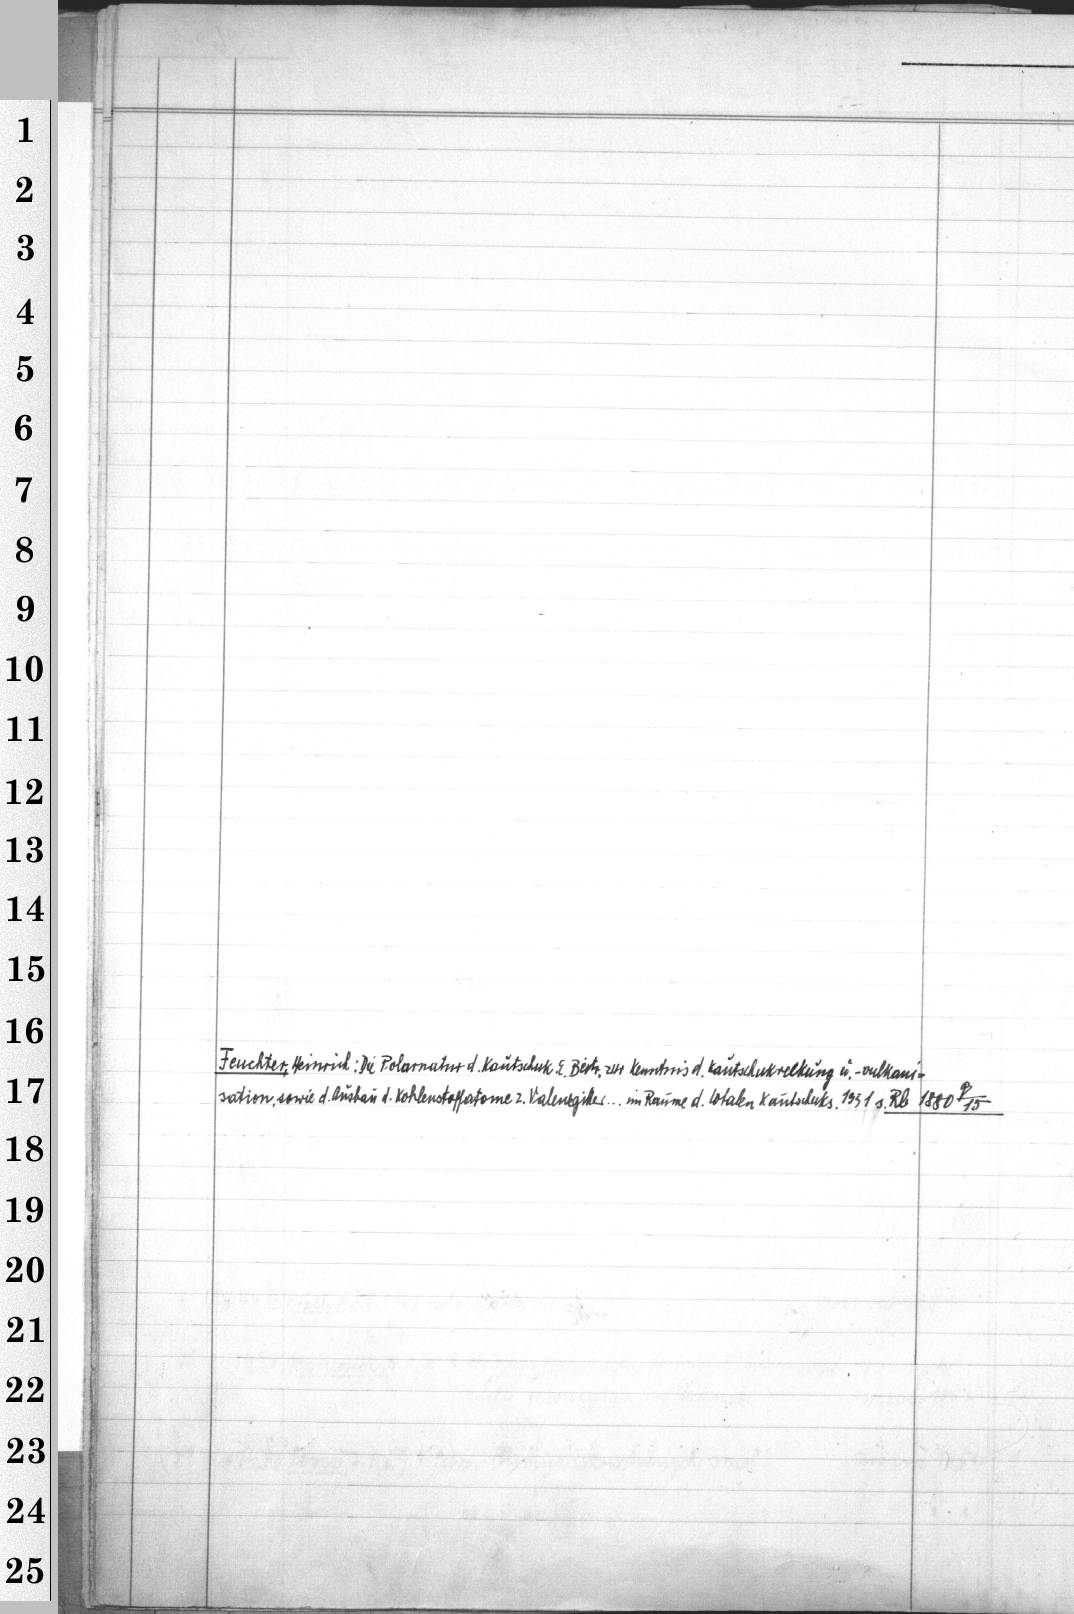 1
2
3
4
5
6
7
8
9
10
11
12
13
14
15
16
Feuchter, Heinrich: Die Polarnatur d. Kautschuk. E. Beitr. zur Kenntnis d. Kautschukreckung u. -vulkani-
17
sation, sowie d. Ausbau d. Kohlenstoffatome z. Valenzgitter... im Raume d. totalen Kautschuks. 1931 s. Rb 1880 9/15
18
19
20
21
22
23
24
25